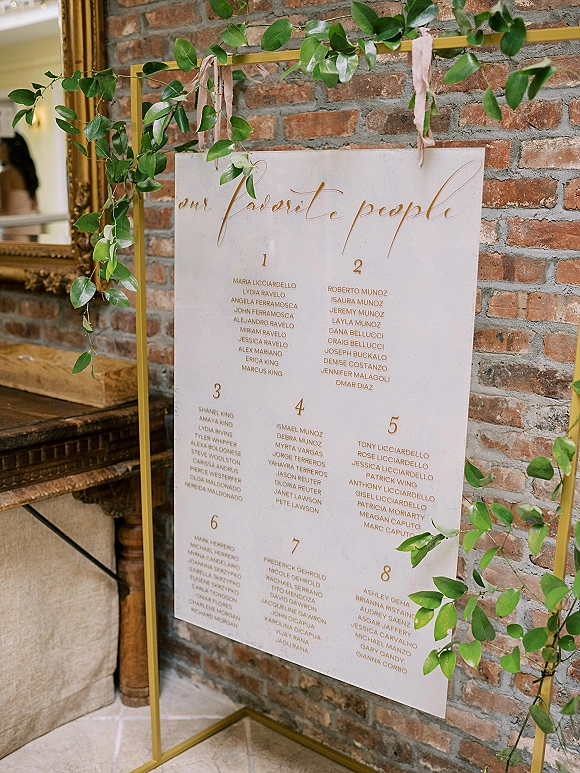 our favorite people
1
MARIA LICCIARDELLO
LYDIA RAVELO
ANGELA FERRAMOSCA
JOHN FERRAMOSCA
ALEJANDRO RAVELO
MIRIAM RAVELO
JESSICA RAVELO
ALEX MARIANO
ERICA KING
MARCUS KING
2
ROBERTO MUNOZ
ISAURA MUNOZ
JEREMY MUNOZ
LAYLA MUNOZ
DANA BELLUCCI
CRAIG BELLUCCI
JOSEPH BUCKALO
DENISE COSTANZO
JENNIFER MALAGOLI
OMAR DIAZ
3
SHANEL KING
AMAYA KING
LYDIA BIVINS
TYLER WHIPPER
ALEXA BOLOGNESE
STEVE WOOLSTON
CARISSA ANDRUS
PIERCE WESTERFER
OLGA MALDONADO
NEREIDA MALDONADO
4
ISMAEL MUNOZ
DEBRA MUNOZ
MYRTA VARGAS
JORGE TERREROS
YAHAYRA TERREROS
JASON REUTER
GLORIA REUTER
JANET LAWSON
PETE LAWSON
5
TONY LICCIARDELLO
ROSE LICCIARDELLO
JESSICA LICCIARDELLO
PATRICK WING
ANTHONY LICCIARDELLO
GISEL LICCIARDELLO
PATRICIA MORIARTY
MEAGAN CAPUTO
MARC CAPUTO
6
MARK HERRERO
MICHAEL HERRERO
MYRNA CANDELARIO
JOANNA SKRZYPKO
IZABELLA SKRZYPKO
EUGENE SKRZYPKO
CARLA TIONGSON
OMAR FLORES
CHARLENE MORGAN
RICHARD MORGAN
7
FREDERICK GEHROLD
NICOLE GEHROLD
RACHAEL SERRANO
TITO MENDOZA
DAVID DAWRON
JACQUELINE DAWRON
JOHN DICAPUA
KAROLINA DICAPUA
VIJAY RANA
JAGU RANA
8
ASHLEY GEHA
BRIANNA RISTAIN
AUDREY SAENZ
ASGAR JAFFERY
JESSICA CARVALHO
MICHAEL MANZO
GARY GANDY
GIANNA CORBO